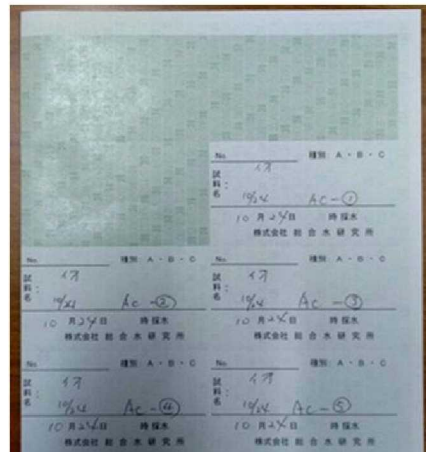 No. 種別: A・B・C
試料名: イオ
10/24 AC-①
10月24日 時採水
株式会社 総合水研究所
No. 種別: A・B・C
試料名: イオ
10/24 AC-②
10月24日 時採水
株式会社 総合水研究所
No. 種別: A・B・C
試料名: イオ
10/24 AC-③
10月24日 時採水
株式会社 総合水研究所
No. 種別: A・B・C
試料名: イオ
10/24 AC-④
10月24日 時採水
株式会社 総合水研究所
No. 種別: A・B・C
試料名: イオ
10/24 AC-⑤
10月24日 時採水
株式会社 総合水研究所